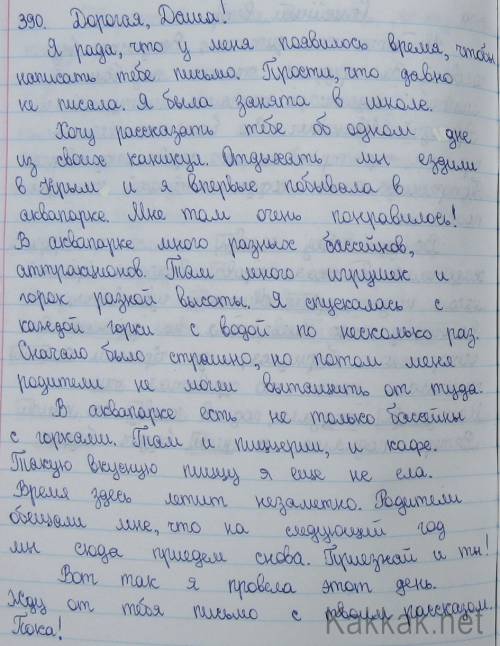 390. Дорогая, Даша!
Я рада, что у меня появилось время, чтобы
написать тебе письмо. Прости, что давно
не писала. Я была занята в школе.
Хочу рассказать тебе об одном дне
из своих каникул. Отдыхать мы ездили
в Крым и я впервые побывала в
аквапарке. Мне там очень понравилось!
В аквапарке много разных бассейнов,
аттракционов. Там много игрушек и
горок разной высоты. Я спускалась с
каждой горки с водой по несколько раз.
Сначало было страшно, но потом меня
родители не могли вытащить от туда.
В аквапарке есть не только басейны
с горками. Там и пиццерии, и кафе.
Такую вкусную пиццу я еще не ела.
Время здесь летит незаметно. Родители
обещали мне, что на следующий год
мы сюда приедем снова. Приезжай и ты!
Вот так я провела этот день.
Жду от тебя письмо с твоим рассказом.
Пока!
Kakkak.net